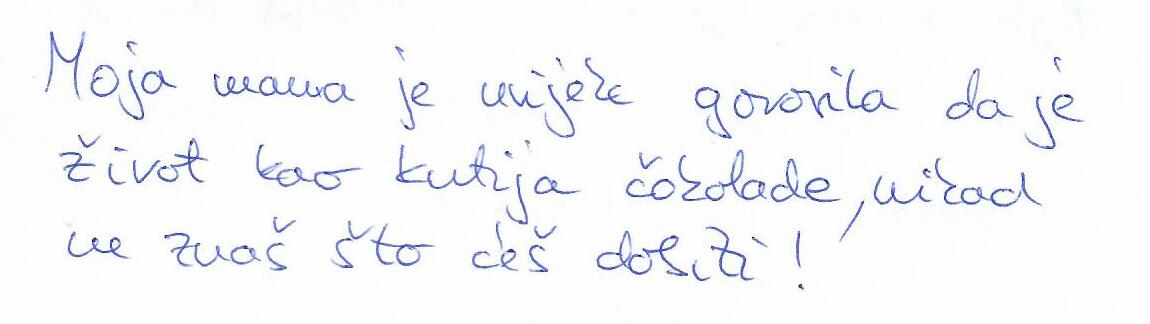 Moja mama je uvijek govorila da je
život kao kutija čokolade, nikad
ne znaš što ćeš dobiti!